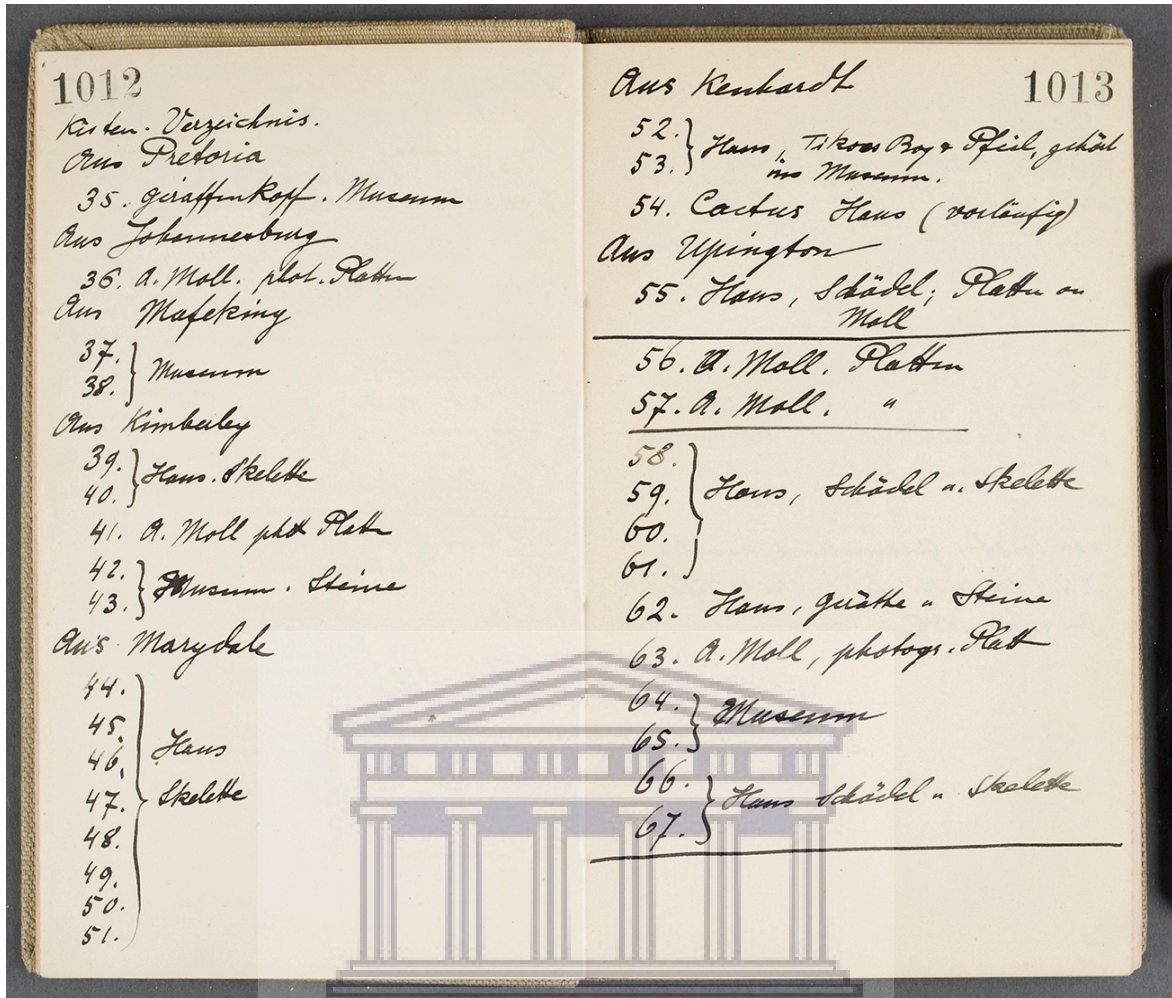 1012
Kisten-Verzeichnis.
Aus Pretoria
35. Giraffenkopf. Museum
Aus Johannesburg
36. A. Moll. phot. Platten
Aus Mafeking
37.
38. } Museum
Aus Kimberley
39.
40. } Haus. Skelette
41. A. Moll phot Platten
42.
43. } Museum. Steine
Aus Marydale
44.
45.
46. Haus
47. } Skelette
48.
49.
50.
51.
Aus Kenhardt 1013
52.
53. } Haus, Pfeil, gehört
ins Museum.
54. Cactus Haus (vorläufig)
Aus Upington
55. Haus, Schädel; Platten an
Moll
56. A. Moll. Platten
57. A. Moll. "
58.
59. } Haus, Schädel u. Skelette
60.
61.
62. Haus, Geräthe u Steine
63. A. Moll, photogr. Platt
64.
65. } Museum
66.
67. } Haus Schädel u Skelette